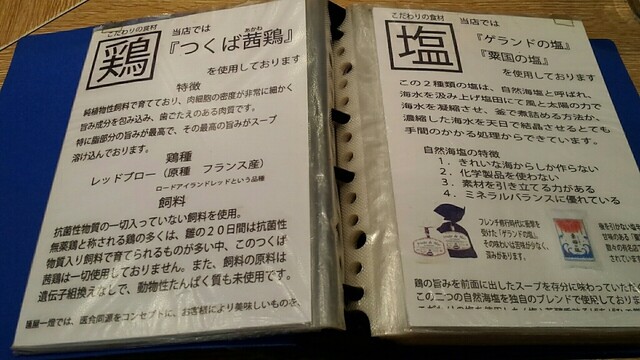 こだわりの食材
鶏
当店では
あかね
『つくば茜鶏』
を使用しております
特徴
純植物性飼料で育てており、肉細胞の密度が非常に細かく
旨み成分を包み込み、歯ごたえのある肉質です。
特に脂部分の旨みが最高で、その最高の旨みがスープ
溶け込んでおります。
鶏種
レッドブロー（原種 フランス産）
ロードアイランドレッドという品種
飼料
抗菌性物質の一切入っていない飼料を使用。
無薬鶏と称される鶏の多くは、雛の２０日間は抗菌性
物質入り飼料で育てられるものが多い中、このつくば
茜鶏は一切使用しておりません。また、飼料の原料は
遺伝子組換えなしで、動物性たんぱく質も未使用です。
麺屋一燈では、医食同源をコンセプトに、お客様により美味しいものを、
こだわりの食材
塩
当店では
『ゲランドの塩』
『粟国の塩』
を使用しております
この２種類の塩は、自然海塩と呼ばれ、
海水を汲み上げ塩田にて風と太陽の力で
海水を凝縮させ、釜で煮詰める方法か、
濃縮した海水を天日で結晶させるとても
手間のかかる処理からできています。
自然海塩の特徴
１．きれいな海からしか作らない
２．化学製品を使わない
３．素材を引き立てる力がある
４．ミネラルバランスに優れている
フレンチ修行時代に衝撃を
受けた「ゲランドの塩」。
その味わいは苦味が少なく、
深みがあります。
鶏の旨みを前面に出したスープを存分に味わっていただく
この二つの自然海塩を独自のブレンドで使用しておりま